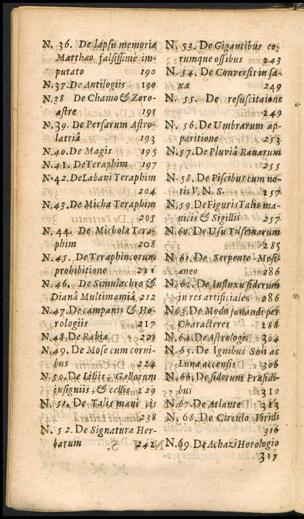 N. 36. De lapsu memoria
Matthæo falsissime im-
putato 190
N. 37. De Antilogiis 190
N. 38 De Chamo & Zoro-
astre 191
N. 39. De Persarum Astro-
latriâ 193
N. 40. De Magis 195
N. 41. De Teraphim 197
N. 42. De Labani Teraphim
204
N. 43. De Micha Teraphim
205
N. 44. De Michola Tera-
phim 208
N. 45. De Teraphinorum
prohibitione 211
N. 46. De Simulachro &
Dianâ Multimamiâ 212
N. 47. De campanis & Ho-
rologiis 217
N. 48. De Rahia 221
N. 49. De Mose cum corni-
bus 224
N. 50. De Liliis, Gallorum
insigniis, & Stellis 229
N. 51. De Talismani vis
238
N. 52. De Signatura Her-
barum 242
N. 53. De Gigantibus eo-
rumque ossibus 243
N. 54. De Conversis in sa-
xa 249
N. 55. De resuscitatione
249
N. 56. De Umbrarum ap-
paritione 253
N. 57. De Pluviâ Ranarum
255
N. 58. De Piscibus cum no-
tis V. N. S. 257
N. 59. De Figuris Talisma-
nicis & Sigillis 257
N. 60. De Usu Tilsenarum
285
N. 61. De Serpente Mosi-
aneo 286
N. 62. De Influxu siderum
in res artificiales 286
N. 63. De Modo juvandi per
Characteres 288
N. 64. De Astrologis 304
N. 65. De Ignibus Solis ac
Lunæ accensis 306
N. 66. De siderum Præsidi-
bus 310
N. 67. De Atlante 313
N. 68. De Circulo Viridi
316
N. 69. De Achazi Horologio
317